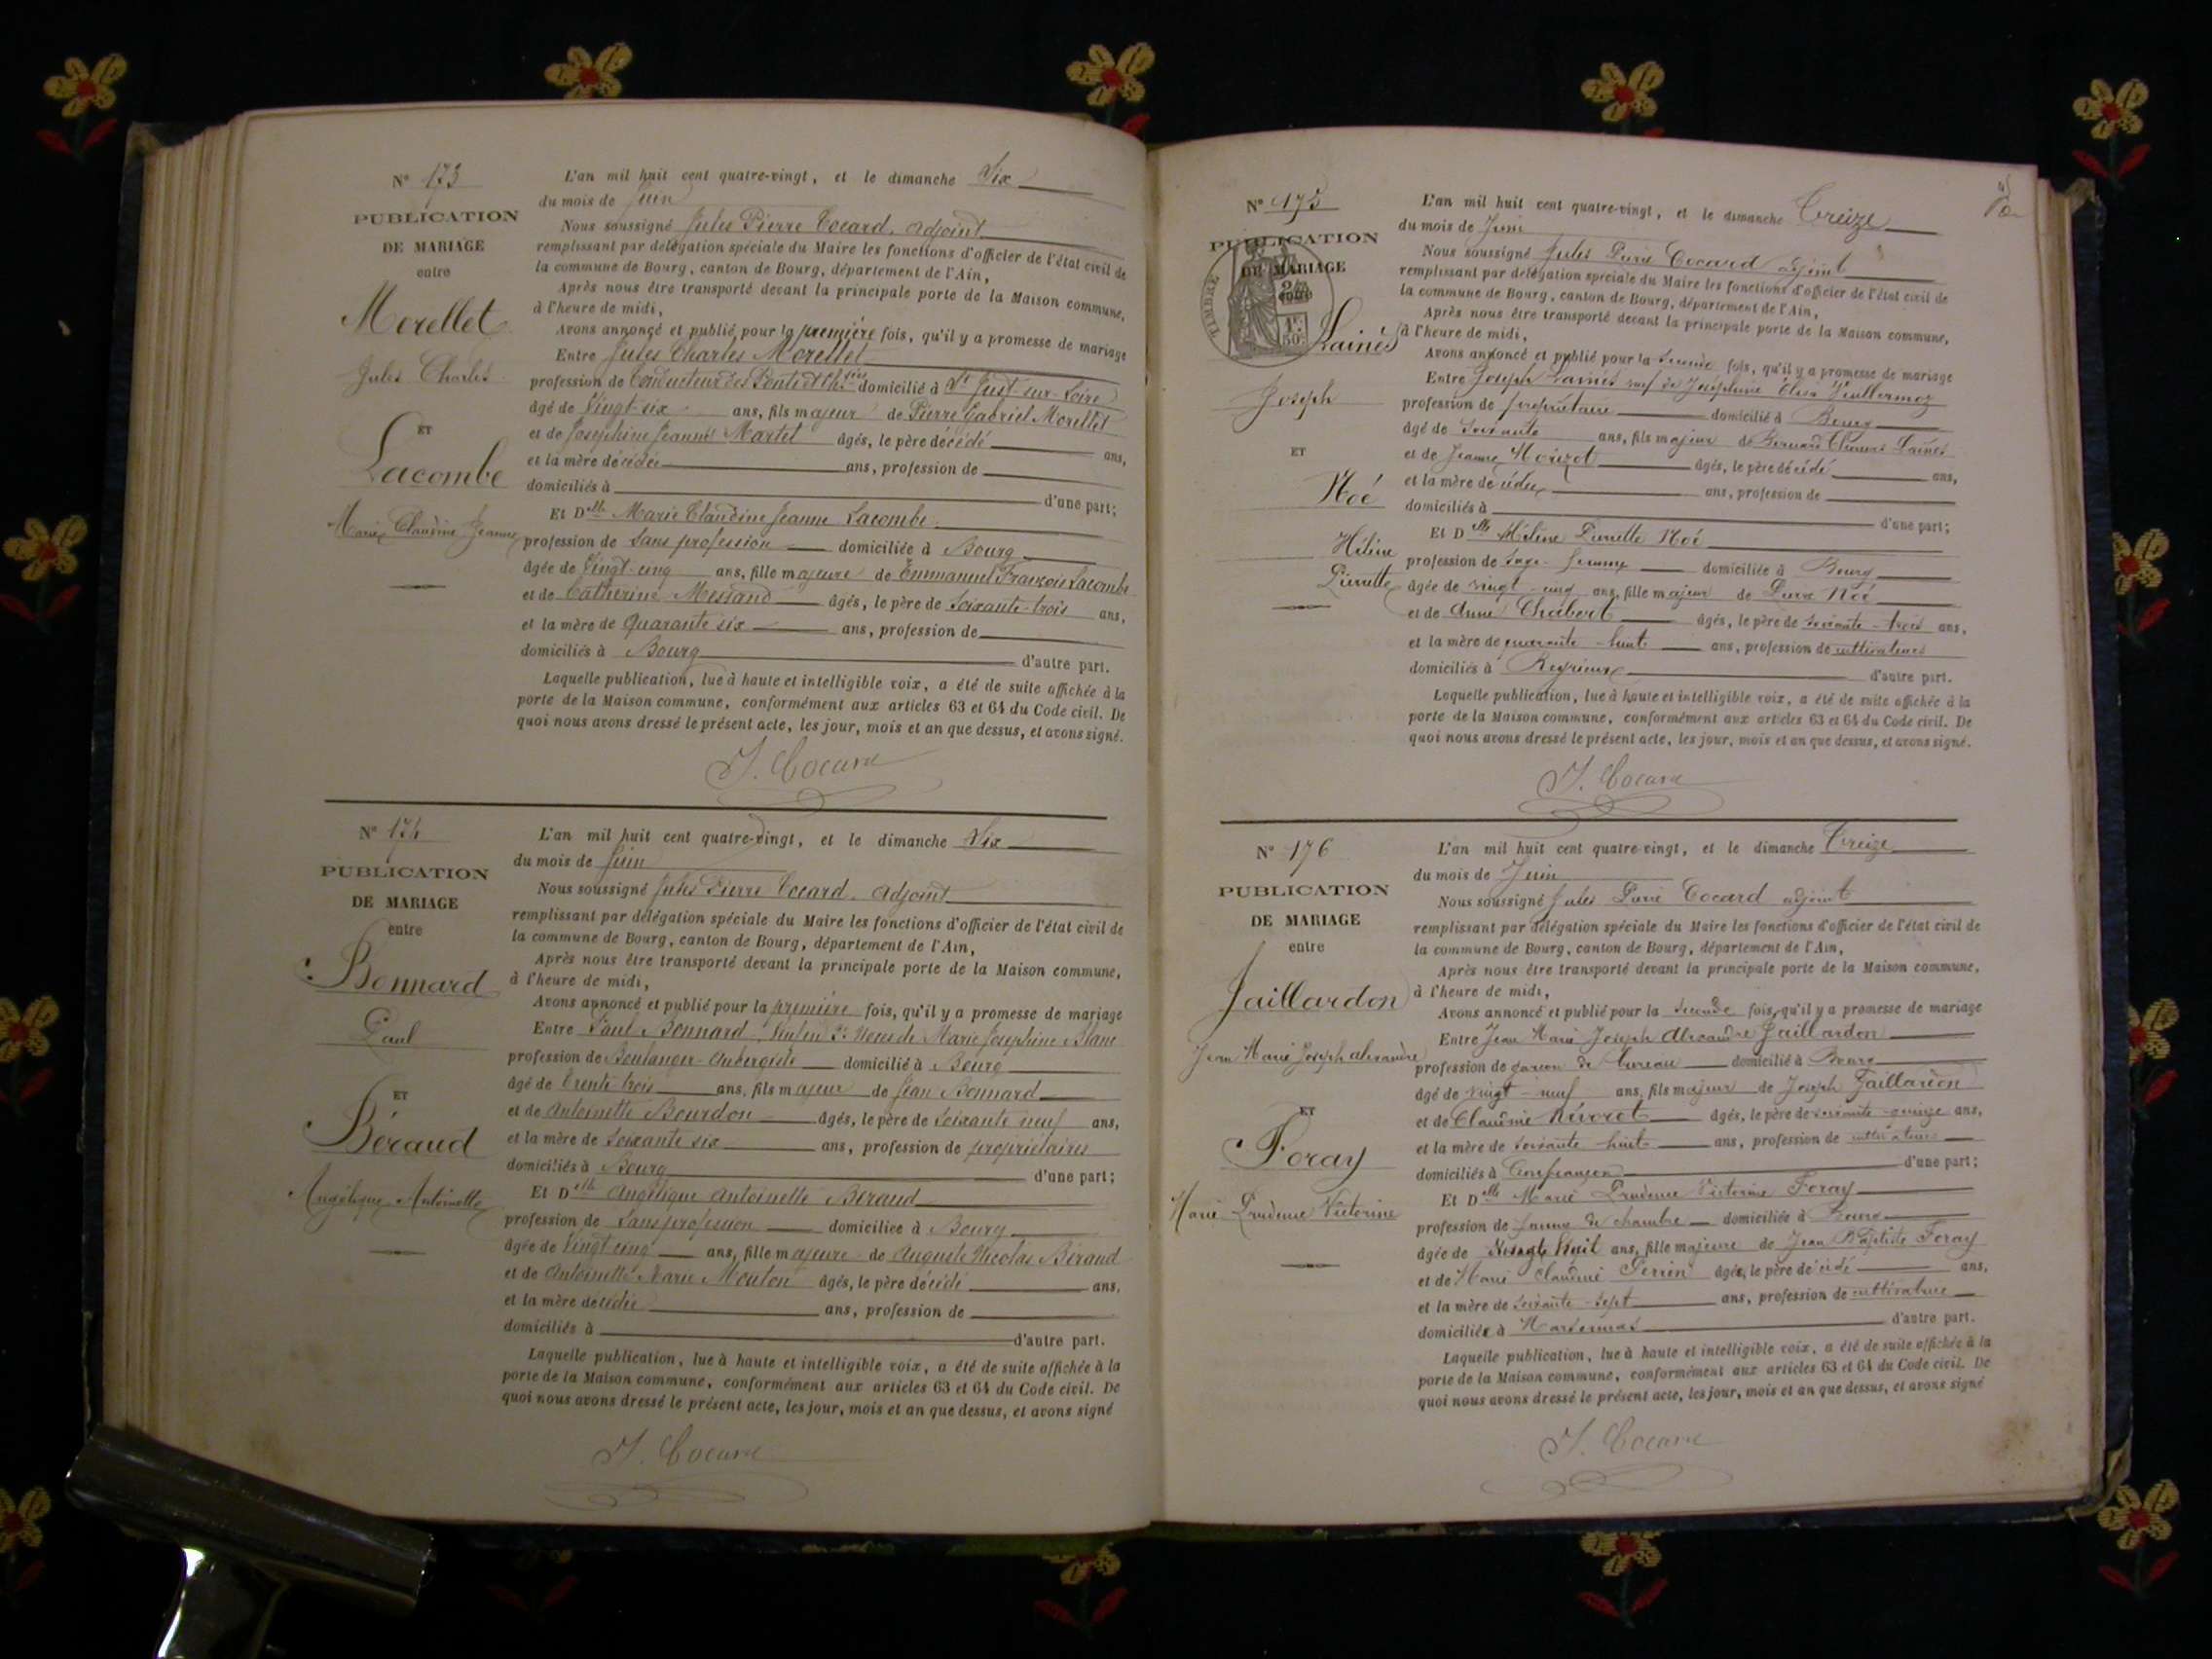 N° 173
PUBLICATION
DE MARIAGE
entre
Morellet
Jules Charles
ET
Lacombe
Marie Claudine Jeanne
L'an mil huit cent quatre-vingt, et le dimanche Six
du mois de Juin
Nous soussigné Jules Pierre Cocard, adjoint
remplissant par délégation spéciale du Maire les fonctions d'officier de l'état civil de
la commune de Bourg, canton de Bourg, département de l'Ain,
Après nous être transporté devant la principale porte de la Maison commune,
à l'heure de midi,
Avons annoncé et publié pour la première fois, qu'il y a promesse de mariage
Entre Jules Charles Morellet
profession de Conducteur des Ponts et Ch.sées domicilié à St Just-sur-Loire
âgé de Vingt-six ans, fils majeur de Pierre Gabriel Morellet
et de Joséphine Jeanne Martel âgés, le père décédé ans,
et la mère décédée ans, profession de
domiciliés à d'une part;
Et Delle Marie Claudine Jeanne Lacombe
profession de Sans profession domiciliée à Bourg
âgée de Vingt-cinq ans, fille majeure de Emmanuel François Lacombe
et de Catherine âgés, le père de Soixante-trois ans,
et la mère de Quarante six ans, profession de
domiciliés à Bourg d'autre part.
Laquelle publication, lue à haute et intelligible voix, a été de suite affichée à la
porte de la Maison commune, conformément aux articles 63 et 64 du Code civil. De
quoi nous avons dressé le présent acte, les jour, mois et an que dessus, et avons signé.
J. Cocard
N° 174
PUBLICATION
DE MARIAGE
entre
Bonnard
Paul
ET
Béraud
Angélique Antoinette
L'an mil huit cent quatre-vingt, et le dimanche Six
du mois de Juin
Nous soussigné Jules Pierre Cocard, adjoint
remplissant par délégation spéciale du Maire les fonctions d'officier de l'état civil de
la commune de Bourg, canton de Bourg, département de l'Ain,
Après nous être transporté devant la principale porte de la Maison commune,
à l'heure de midi,
Avons annoncé et publié pour la première fois, qu'il y a promesse de mariage
Entre Paul Bonnard, de Marie Joséphine Blanc
profession de Boulanger-Aubergiste domicilié à Bourg
âgé de Trente trois ans, fils majeur de Jean Bonnard
et de Antoinette Bourdon âgés, le père de Soixante neuf ans,
et la mère de Soixante six ans, profession de propriétaires
domiciliés à Bourg d'une part;
Et Delle Angélique Antoinette Béraud
profession de Sans profession domiciliée à Bourg
âgée de Vingt cinq ans, fille majeure de Auguste Nicolas Béraud
et de Antoinette Marie Mouton âgés, le père décédé ans,
et la mère décédée ans, profession de
domiciliés à d'autre part.
Laquelle publication, lue à haute et intelligible voix, a été de suite affichée à la
porte de la Maison commune, conformément aux articles 63 et 64 du Code civil. De
quoi nous avons dressé le présent acte, les jour, mois et an que dessus, et avons signé
J. Cocard
N° 175
PUBLICATION
DE MARIAGE
entre
TIMBRE
Lainés
Joseph
ET
Noé
Hélène
Pierrette
L'an mil huit cent quatre-vingt, et le dimanche Treize
du mois de Juin
Nous soussigné Jules Pierre Cocard adjoint
remplissant par délégation spéciale du Maire les fonctions d'officier de l'état civil de
la commune de Bourg, canton de Bourg, département de l'Ain,
Après nous être transporté devant la principale porte de la Maison commune,
à l'heure de midi,
Avons annoncé et publié pour la seconde fois, qu'il y a promesse de mariage
Entre Joseph Lainés veuf de Joséphine Elisa Vuillermoz
profession de propriétaire domicilié à Bourg
âgé de Soixante ans, fils majeur de Bernard Clément Lainés
et de Jeanne âgés, le père décédé ans,
et la mère décédée ans, profession de
domiciliés à d'une part;
Et Delle Hélène Pierrette Noé
profession de Sage-femme domiciliée à Bourg
âgée de vingt-cinq ans, fille majeur de Pierre Noé
et de Anne Chabert âgés, le père de soixante-trois ans,
et la mère de quarante-huit ans, profession de cultivateurs
domiciliés à Reyrieux d'autre part.
Laquelle publication, lue à haute et intelligible voix, a été de suite affichée à la
porte de la Maison commune, conformément aux articles 63 et 64 du Code civil. De
quoi nous avons dressé le présent acte, les jour, mois et an que dessus, et avons signé.
J. Cocard
N° 176
PUBLICATION
DE MARIAGE
entre
Jaillardon
Jean Marie Joseph alexandre
ET
Foray
Marie Prudence Victorine
L'an mil huit cent quatre-vingt, et le dimanche Treize
du mois de Juin
Nous soussigné Jules Pierre Cocard adjoint
remplissant par délégation spéciale du Maire les fonctions d'officier de l'état civil de
la commune de Bourg, canton de Bourg, département de l'Ain,
Après nous être transporté devant la principale porte de la Maison commune,
à l'heure de midi,
Avons annoncé et publié pour la seconde fois, qu'il y a promesse de mariage
Entre Jean Marie Joseph Alexandre Jaillardon
profession de garçon de bureau domicilié à Bourg
âgé de vingt-neuf ans, fils majeur de Joseph Jaillardon
et de Claudine Nivoret âgés, le père de soixante-quinze ans,
et la mère de soixante-huit ans, profession de cultivateurs
domiciliés à d'une part;
Et Delle Marie Prudence Victorine Foray
profession de femme de chambre domiciliée à Bourg
âgée de Vingt huit ans, fille majeure de Jean Baptiste Foray
et de Marie Claudine Perrin âgés, le père décédé ans,
et la mère de soixante-sept ans, profession de cultivatrice
domiciliée à d'autre part.
Laquelle publication, lue à haute et intelligible voix, a été de suite affichée à la
porte de la Maison commune, conformément aux articles 63 et 64 du Code civil. De
quoi nous avons dressé le présent acte, les jour, mois et an que dessus, et avons signé
J. Cocard